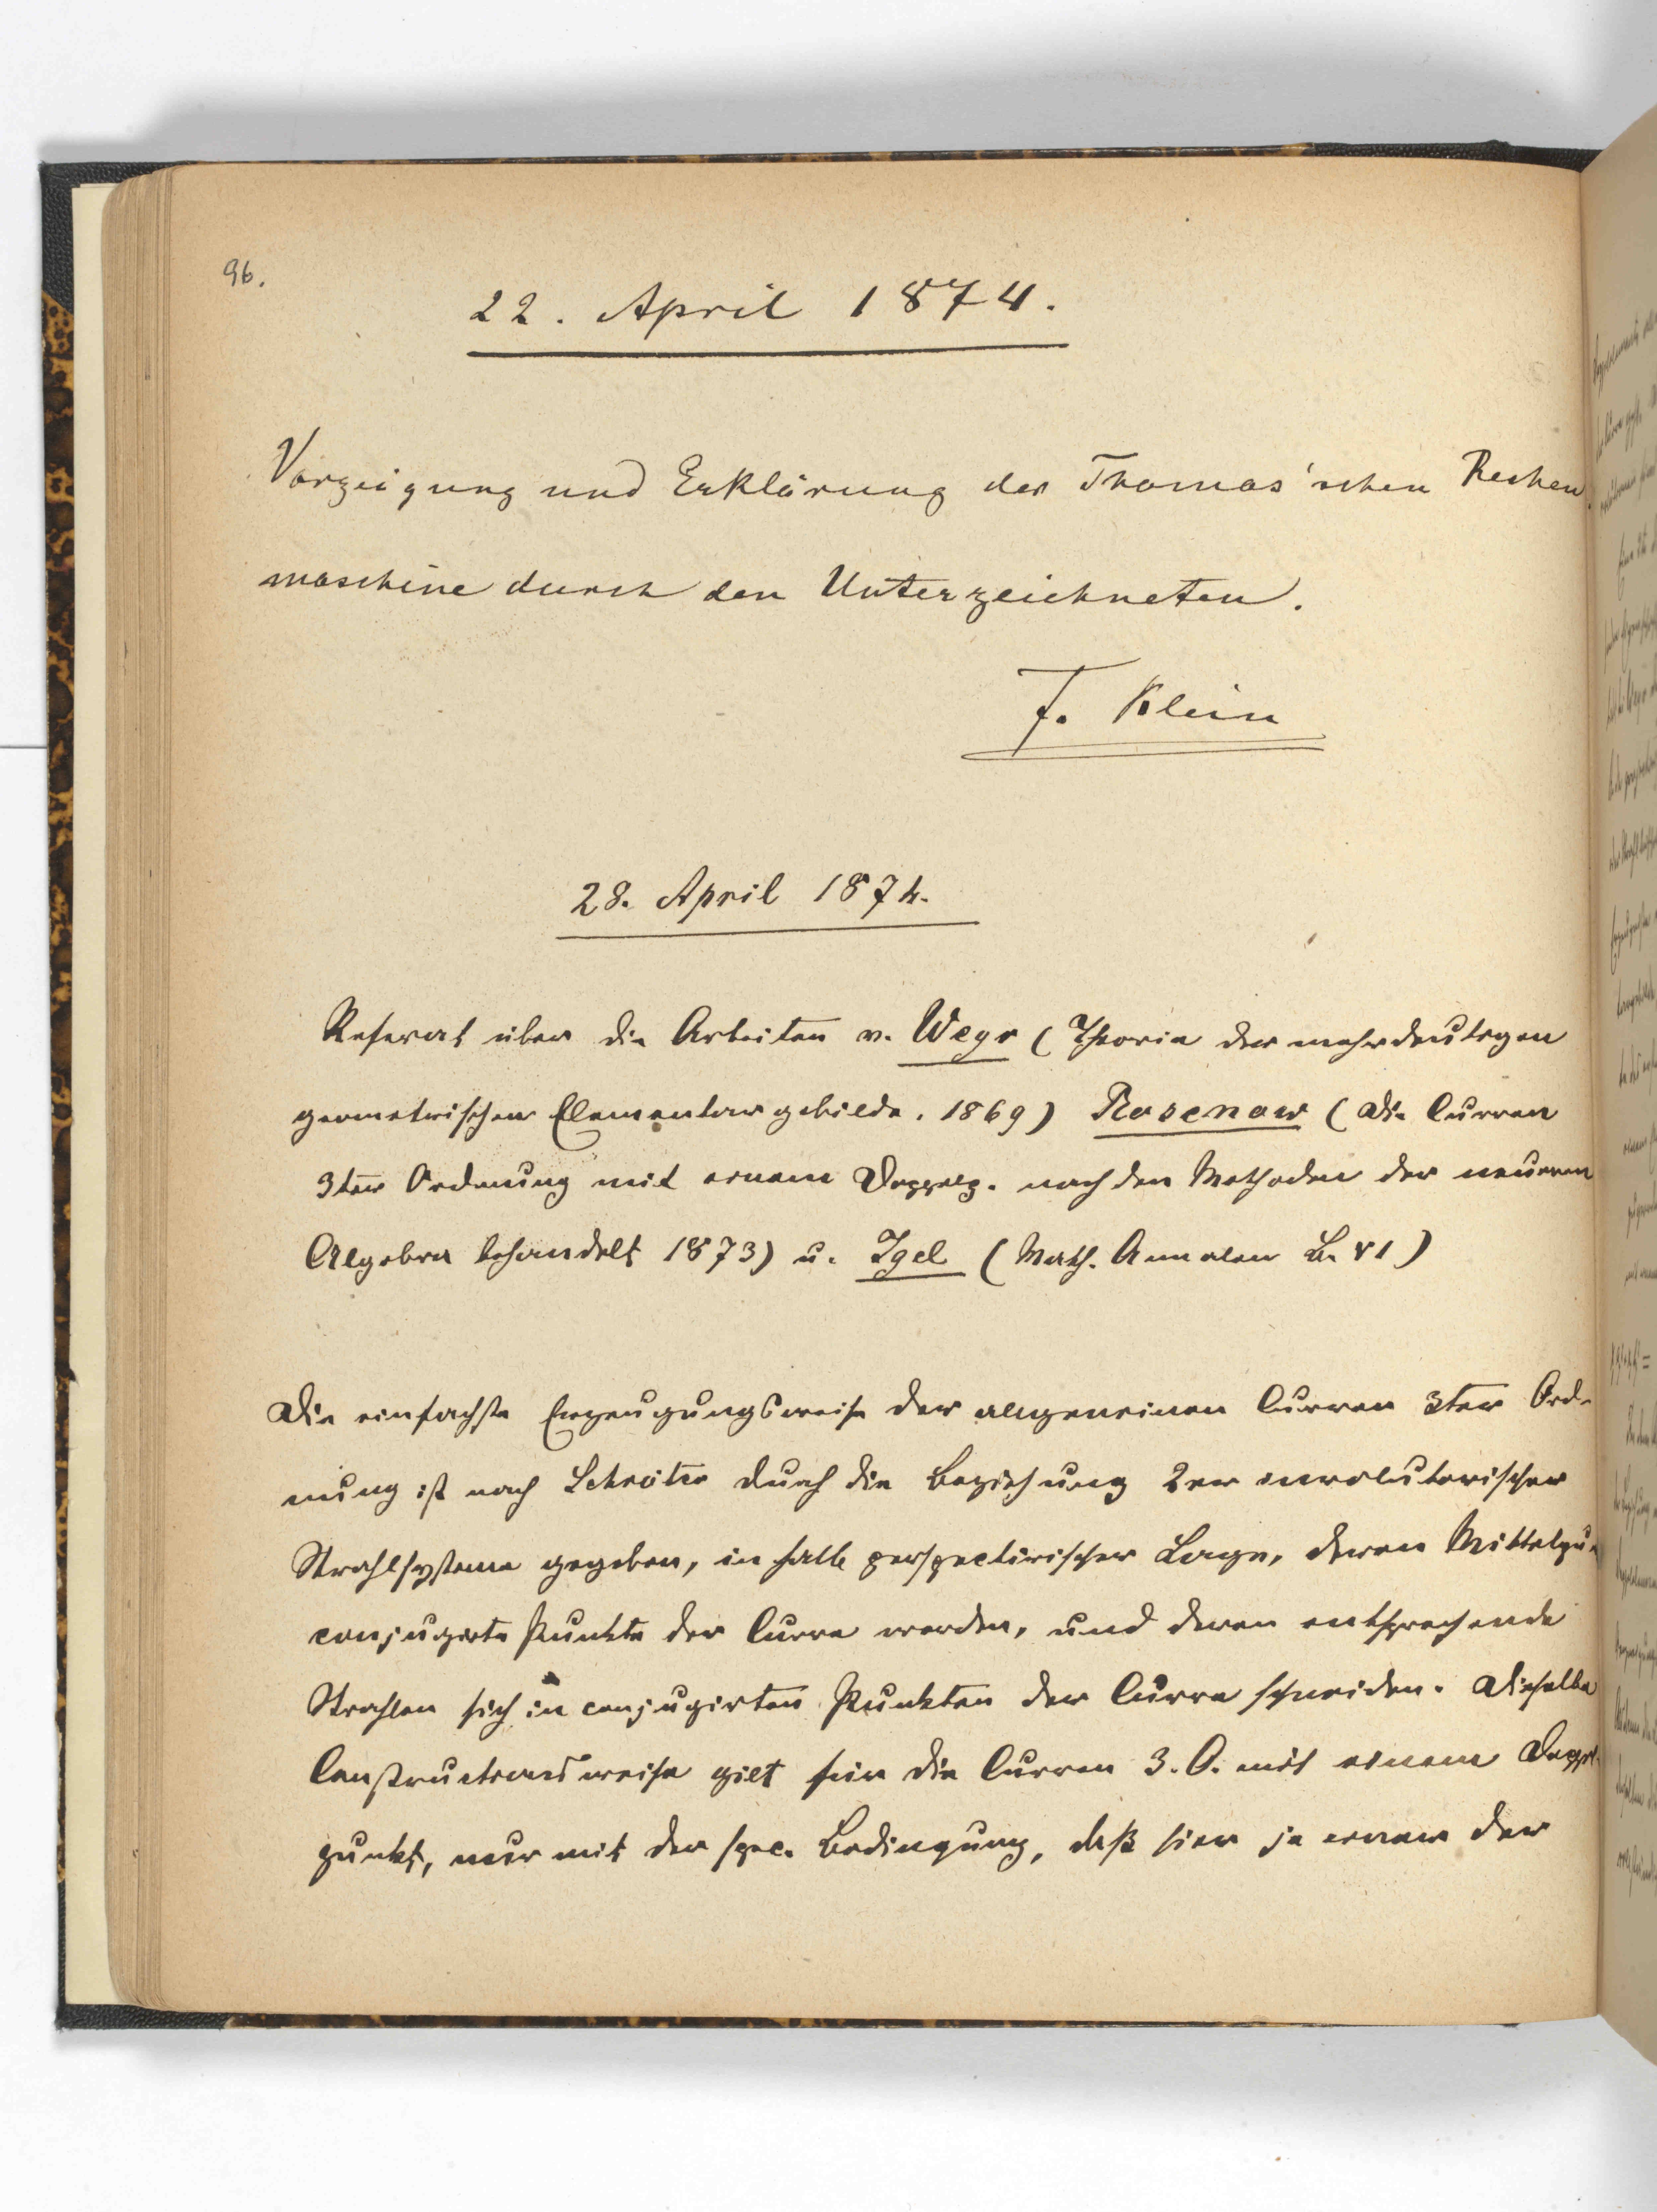 96.
22. April 1874.
Vorzeigung und Erklärung der Thomas'schen Rechen
maschine durch den Unterzeichneten.
F. Klein
28. April 1874.
Referat über die Arbeiten v. Weyr (Theorie der mehrdeutigen
geometrischen Elementargebilde. 1869) Rosenow (Die Curven
3ter Ordnung mit einem Doppelp. nach den Methoden der neueren
Algebra behandelt 1873) u. Igel (Math. Annalen B. VI)
Die einfachste Erzeugungsweise der allgemeinen Curven 3ter Ord-
nung ist nach Schröter durch die Beziehung 2er involutorischer
Strahlsysteme gegeben, in halb perspectivischer Lage, deren Mittelpu
conjugirte Punkte der Curve werden, und deren entsprechende
Strahlen sich in conjugirten Punkten der Curve schneiden. Dieselbe
Constructionsweise gilt für die Curven 3. O. mit einem Doppel-
punkt, nur mit der spec. Bedingung, daß hier je einer der